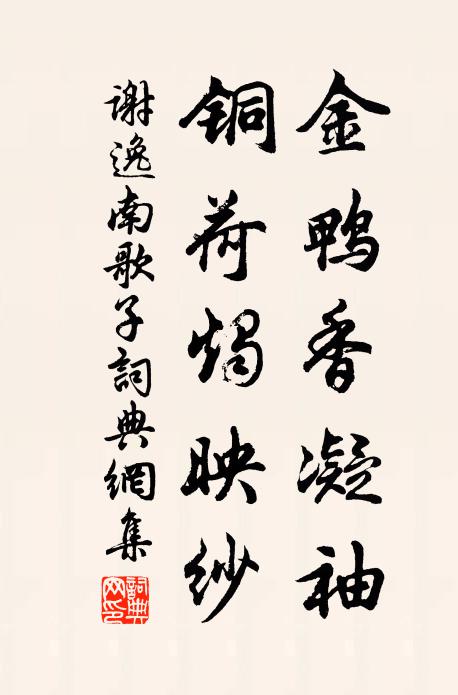 金鸭香凝袖
铜荷烛映纱
謝逸南歌子詞典網集
詞典网印